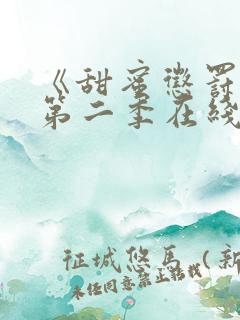 《甜蜜惩罚
第二季在线
征城悠马(新
未经同意禁止转载